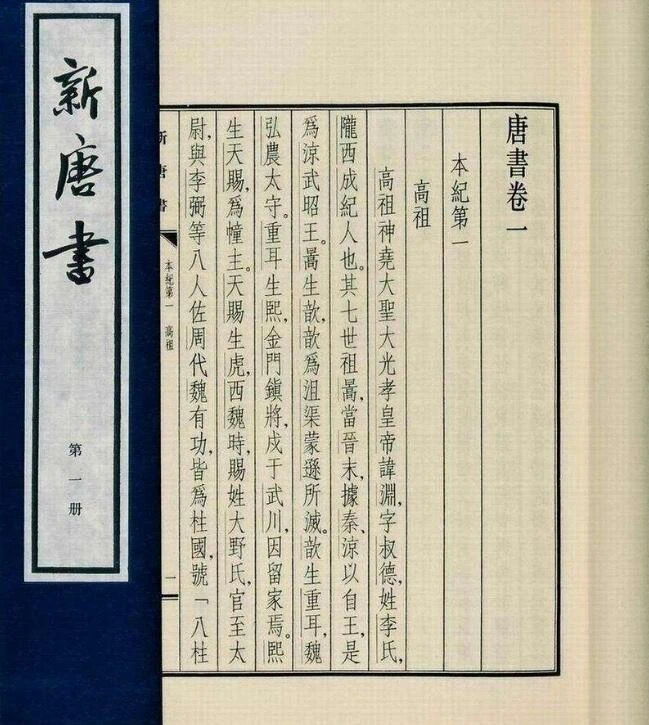 新唐書
第一册
唐書卷一
本紀第一
高祖
高祖神堯大聖大光孝皇帝諱淵,字叔德,姓李氏,
隴西成紀人也。其七世祖暠,當晉末,據秦、涼以自王,是
爲涼武昭王。暠生歆,歆爲沮渠蒙遜所滅。歆生重耳,魏
弘農太守。重耳生熙,金門鎮將,戍于武川,因留家焉。熙
生天賜,爲幢主。天賜生虎,西魏時,賜姓大野氏,官至太
尉,與李弼等八人佐周代魏有功,皆爲柱國,號「八柱
新唐書
本紀第一 高祖
一